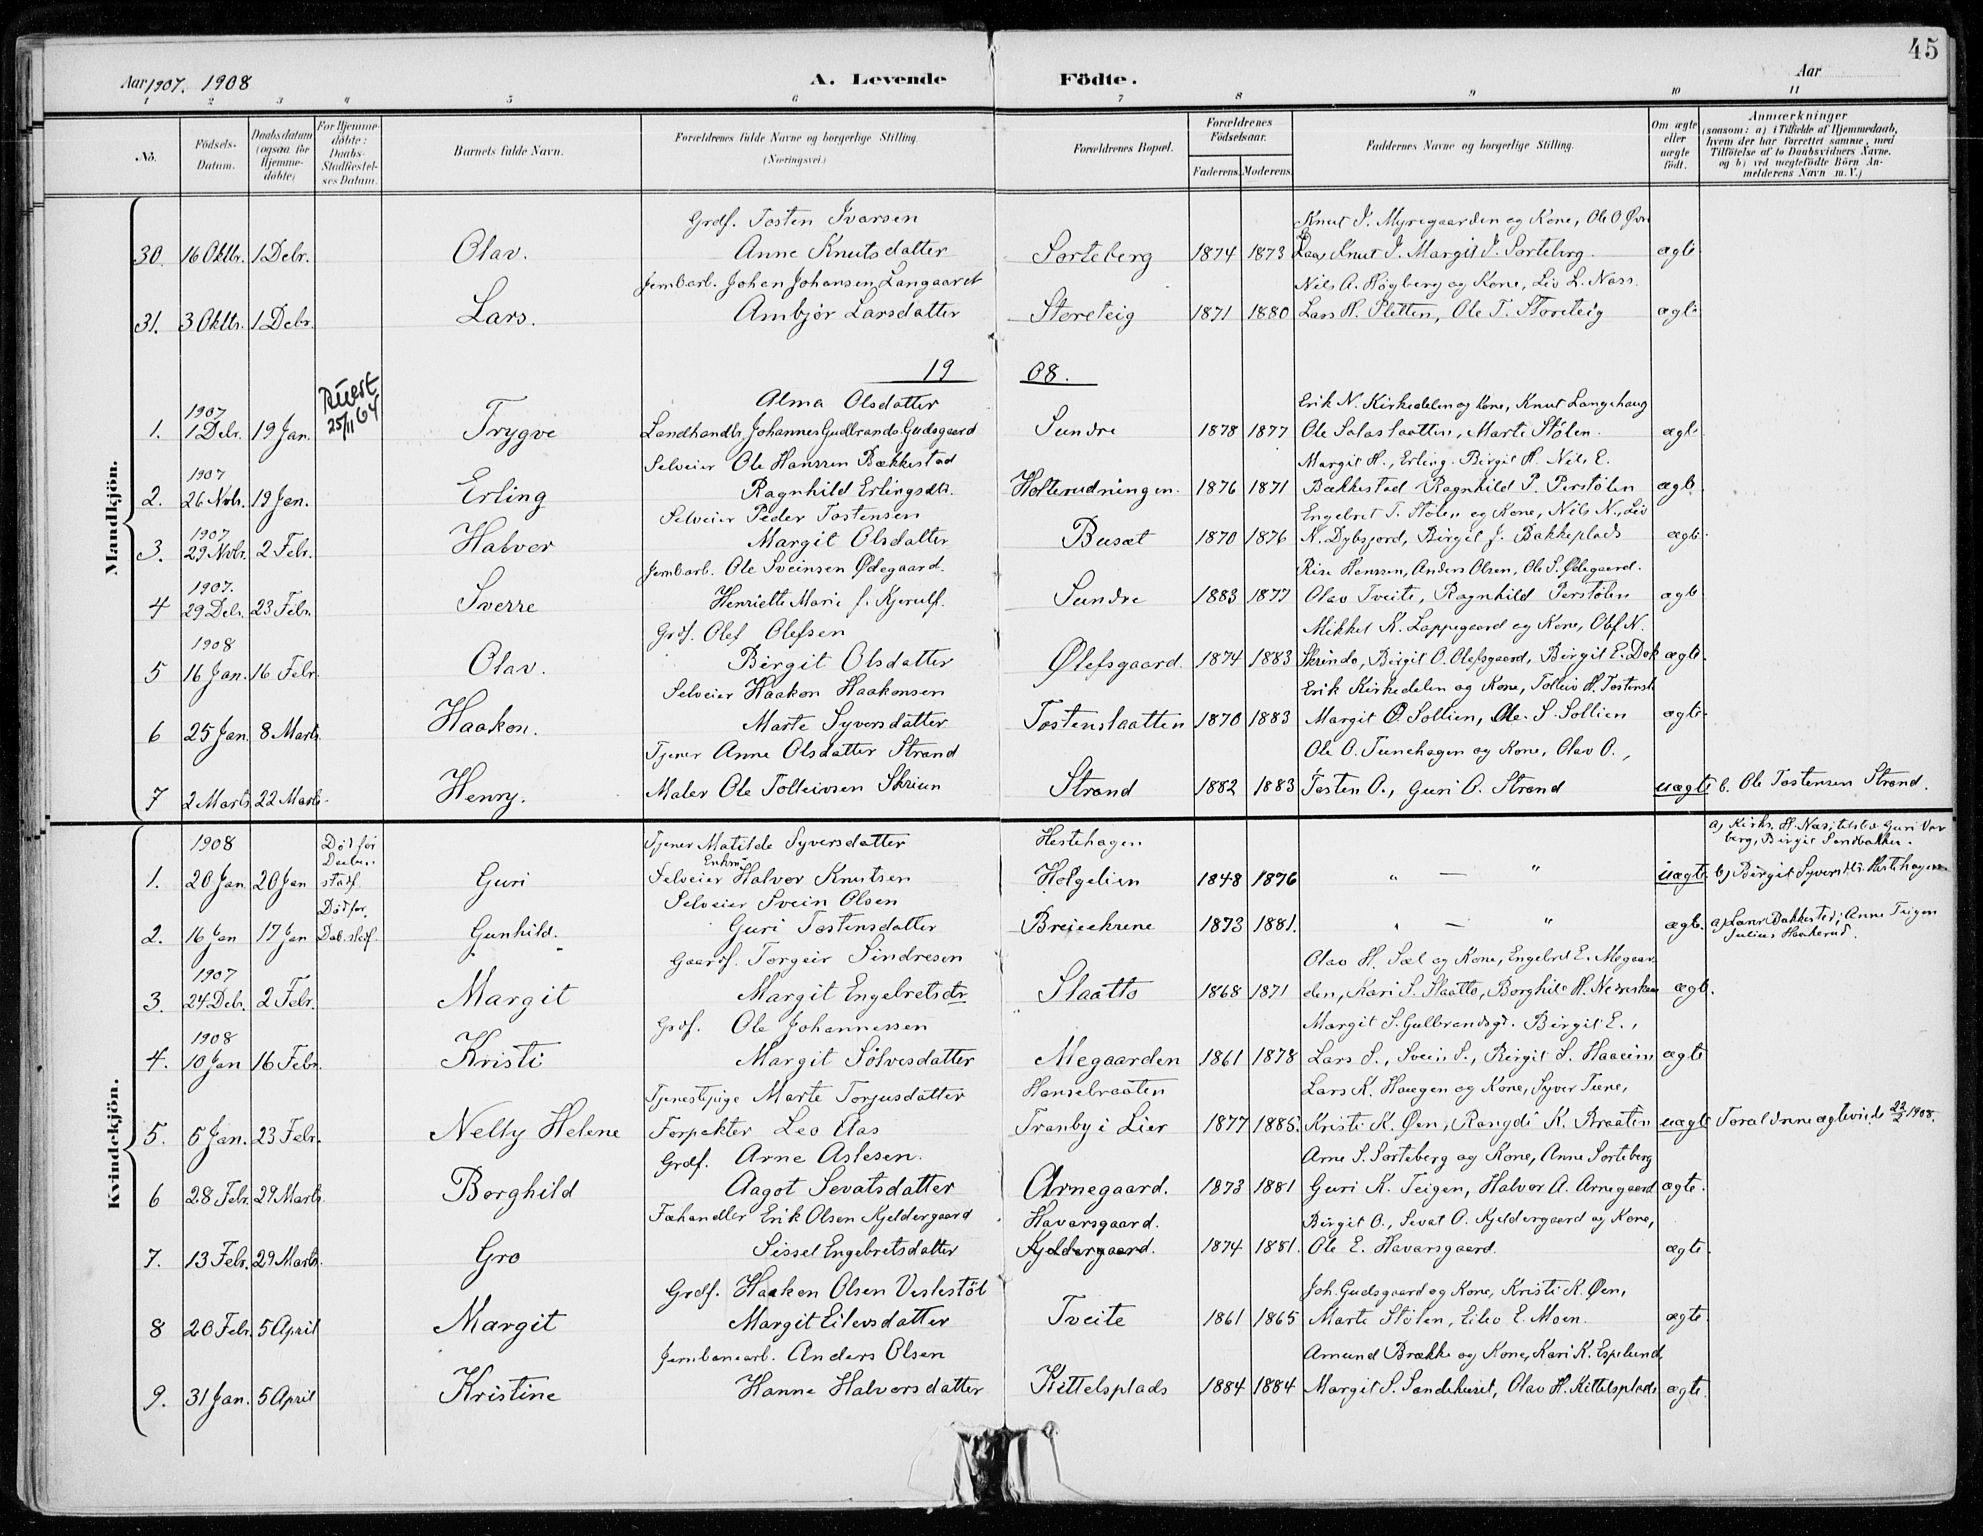 45
Aar 1907. 1908 A. Levende Födte. Aar
1 2 3 4 5 6 7 8 9 10 11
No. Födsels-Datum. Daabsdatum (ogsaa for Hjemme-döbte) For Hjemme-döbte: Daabs-Stadfæstel-ses Datum. Barnets fulde Navn. Forældrenes fulde Navne og borgerlige Stilling. (Næringsvei.) Forældrenes Bopæl. Forældrenes Födselsaar. Faderens. Moderens. Faddernes Navne og borgerlige Stilling. Om ægte eller uægte født. Anmærkninger (saasom: a) i Tilfælde af Hjemmedaab, hvem der har forrettet samme, med Tilföielse af to Daabsvidners Navne. og b) ved uægtefødte Börn An-melderens Navn m. V.)
Mandkjön.
Grdf. Tosten Ivarsen Knut I. Myregaarden og Kone, Ole O Øvre
30. 16 Oktb. 1 Debr. Olav. Anne Knutsdatter Sorteberg 1874 1873 Knut I. Margit I. Sorteberg. ægte
Jernbarb. Johan Johansen Langaaret Nils A. Högberg og Kone, Liv L. Næss.
31. 3 Oktb. 1 Debr. Lars. Ambjør Larsdatter Storeteig 1871 1880 Lars H. Sletten, Ole T. Storeteig ægte
19 08.
1907 25/11 64 Alma Olsdatter Erik N. Kirkedelen og Kone, Knut Langehaug
1. 1 Debr. 19 Jan. Trygve Landhandlr. Johannes Gudbrands Gudsgaard Sundre 1878 1877 Ole Salaslaatten, Marte Stølen. ægte
1907 Selveier Ole Hanssen Bækkestad Margit H., Erling. Birgit H. Nils E.
2. 26 Novbr. 19 Jan. Erling Ragnhild Erlingsdtr. Holterudningen. 1876 1871 Bækkestad Ragnhild P. Perstølen ægte
1907 Selveier Peder Tostensen Engebret T. Stølen og Kone, Nils N., Liv
3. 29 Novbr. 2 Febr. Halvor Margit Olsdatter Busæt 1870 1876 N. Dybsjord, Birgit J. Bakkeplads ægte
1907. Jernbarb. Ole Sveinsen Ødegaard. Rise Hanssen, Anders Olsen, Ole S. Ødegaard.
4 29 Debr. 23 Febr. Sverre Henriette Marie f. Kjerulf. Sundre 1883 1877 Olav Tveite, Ragnhild Perstølen ægte
1908 Grdf. Olef Olefsen Mikkel K. Lappegaard og Kone, Olef N.
5 16 Jan. 16 Febr. Olav. Birgit Olsdatter Ølefsgaard. 1874 1883 Skrindo, Birgit O. Olefsgaard, Birgit E. Dok ægte.
Selveier Haakon Haakonsen Erik Kirkedelen og Kone, Tolleiv H. Tostensl.
6 25 Jan. 8 Marts Haakon. Marte Syversdatter Tostenslaatten 1870 1883 Margit O. Sollien, Ole. S. Sollien ægte.
Tjener Anne Olsdatter Strand Ole O. Tunehagen og Kone, Olav O.,
7 2 Marts 22 Marts. Henry. Maler Ole Tolleivsen Skriun Strand 1882 1883 Tosten O., Guri O. Strand uægte b. Ole Tostensen Strand.
Kvindekjön.
1908 Død før Tjener Matilde Syversdatter Hestehagen a) Kirks. H. Næs,
berg, Birgit Sandbakken.
1. 20 Jan. 20 Jan stadf. Guri Selveier Enkm. Halvor Knutsen Holgelien 1848 1876 " — " uægte b) Birgit Syversdtr. Hestehagen
Død før Selveier Svein Olsen
2. 16 Jan 17 Jan Gunhild. Guri Tostensdatter Breieskrene 1873 1881. " — " ægte. a) Lars Bakkestad; Anne Teigen Julius Haakerud.
1907 Gaardf. Torgeir Sindresen Olav H. Sæl og Kone, Engebret E. Megaar-
3. 24 Debr. 2 Febr. Margit Margit Engebretsdtr. Slaatto 1868 1871 den, Kari S. Slaatto, Borghild H. ægte.
1908 Grdf. Ole Johannessen Margit S. Gulbrandsgd. Birgit E.,
4. 10 Jan 16 Febr. Kristi Margit Sølvesdatter Megaarden 1861 1878 Lars S., Svein S., Birgit S. ægte
Tjenestepige Marte Torjusdatter Hansebraaten Lars K. Haugen og Kone, Syver Tune,
5. 5 Jan. 23 Febr. Nelly Helene Forpakter Leo Aas Tranby i Lier 1877 1885. Kristi K. Øen, Rangdi K. Braaten uægte 22/2 1908.
Grdf. Arne Aslesen. Arne S. Sorteberg og Kone, Anne Sorteberg
6 28 Febr. 29 Marts. Borghild Aagot Sevatsdatter Arnegaard. 1873 1881 Guri K. Teigen, Halvor A. Arnegaard ægte.
Fæhandler Erik Olsen Kjeldergaard Havarsgaard. Birgit O., Sevat O. Kjeldergaard og Kone,
7. 13 Febr. 29 Marts. Gro Sissel Engebretsdatter Kjeldergaard. 1874 1881. Ole E. Havarsgaard. ægte.
Grdf. Haakon Olsen Veslestöl Joh. Gudsgaard og Kone, Kristi K. Øen,
8 20 Febr. 5 April Margit Margit Eilevsdatter Tveite 1861 1865 Marte Stölen, Eilev E. Moen. ægte.
Jernbanearb. Anders Olsen Amund Brække og Kone, Kari K. Espelund,
9. 31 Jan. 5 April Kristine Hanne Halvorsdatter Kittelsplads 1884 1884 Margit S. Sandehuset, Olav H. Kittelsplads ægte.